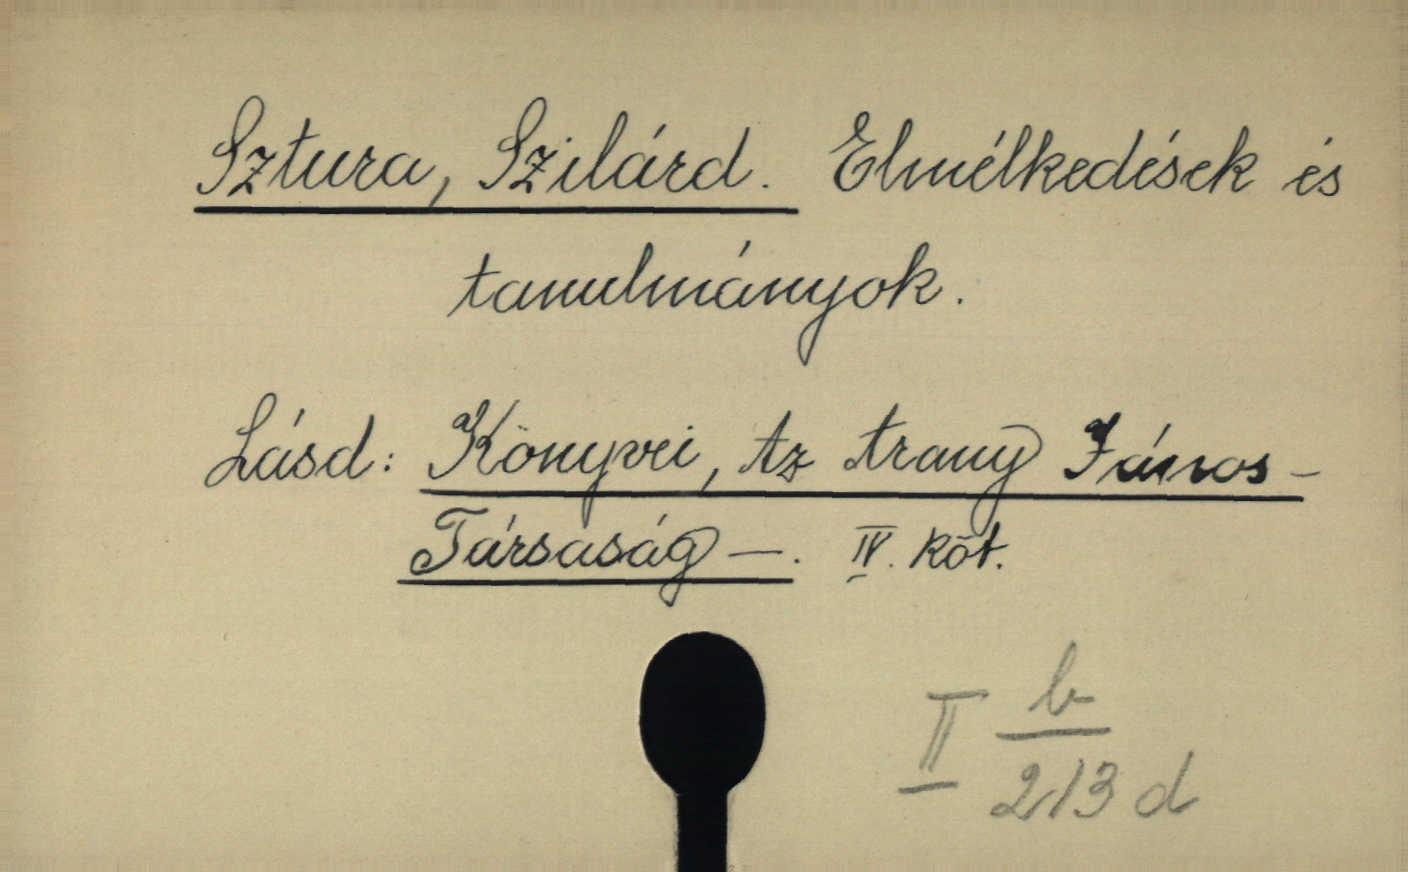 Sztura, Szilárd. Elmélkedések és
tanulmányok.
Lásd: Könyvei, Az Arany János-
Társaság —. IV. köt.
II b
213 d